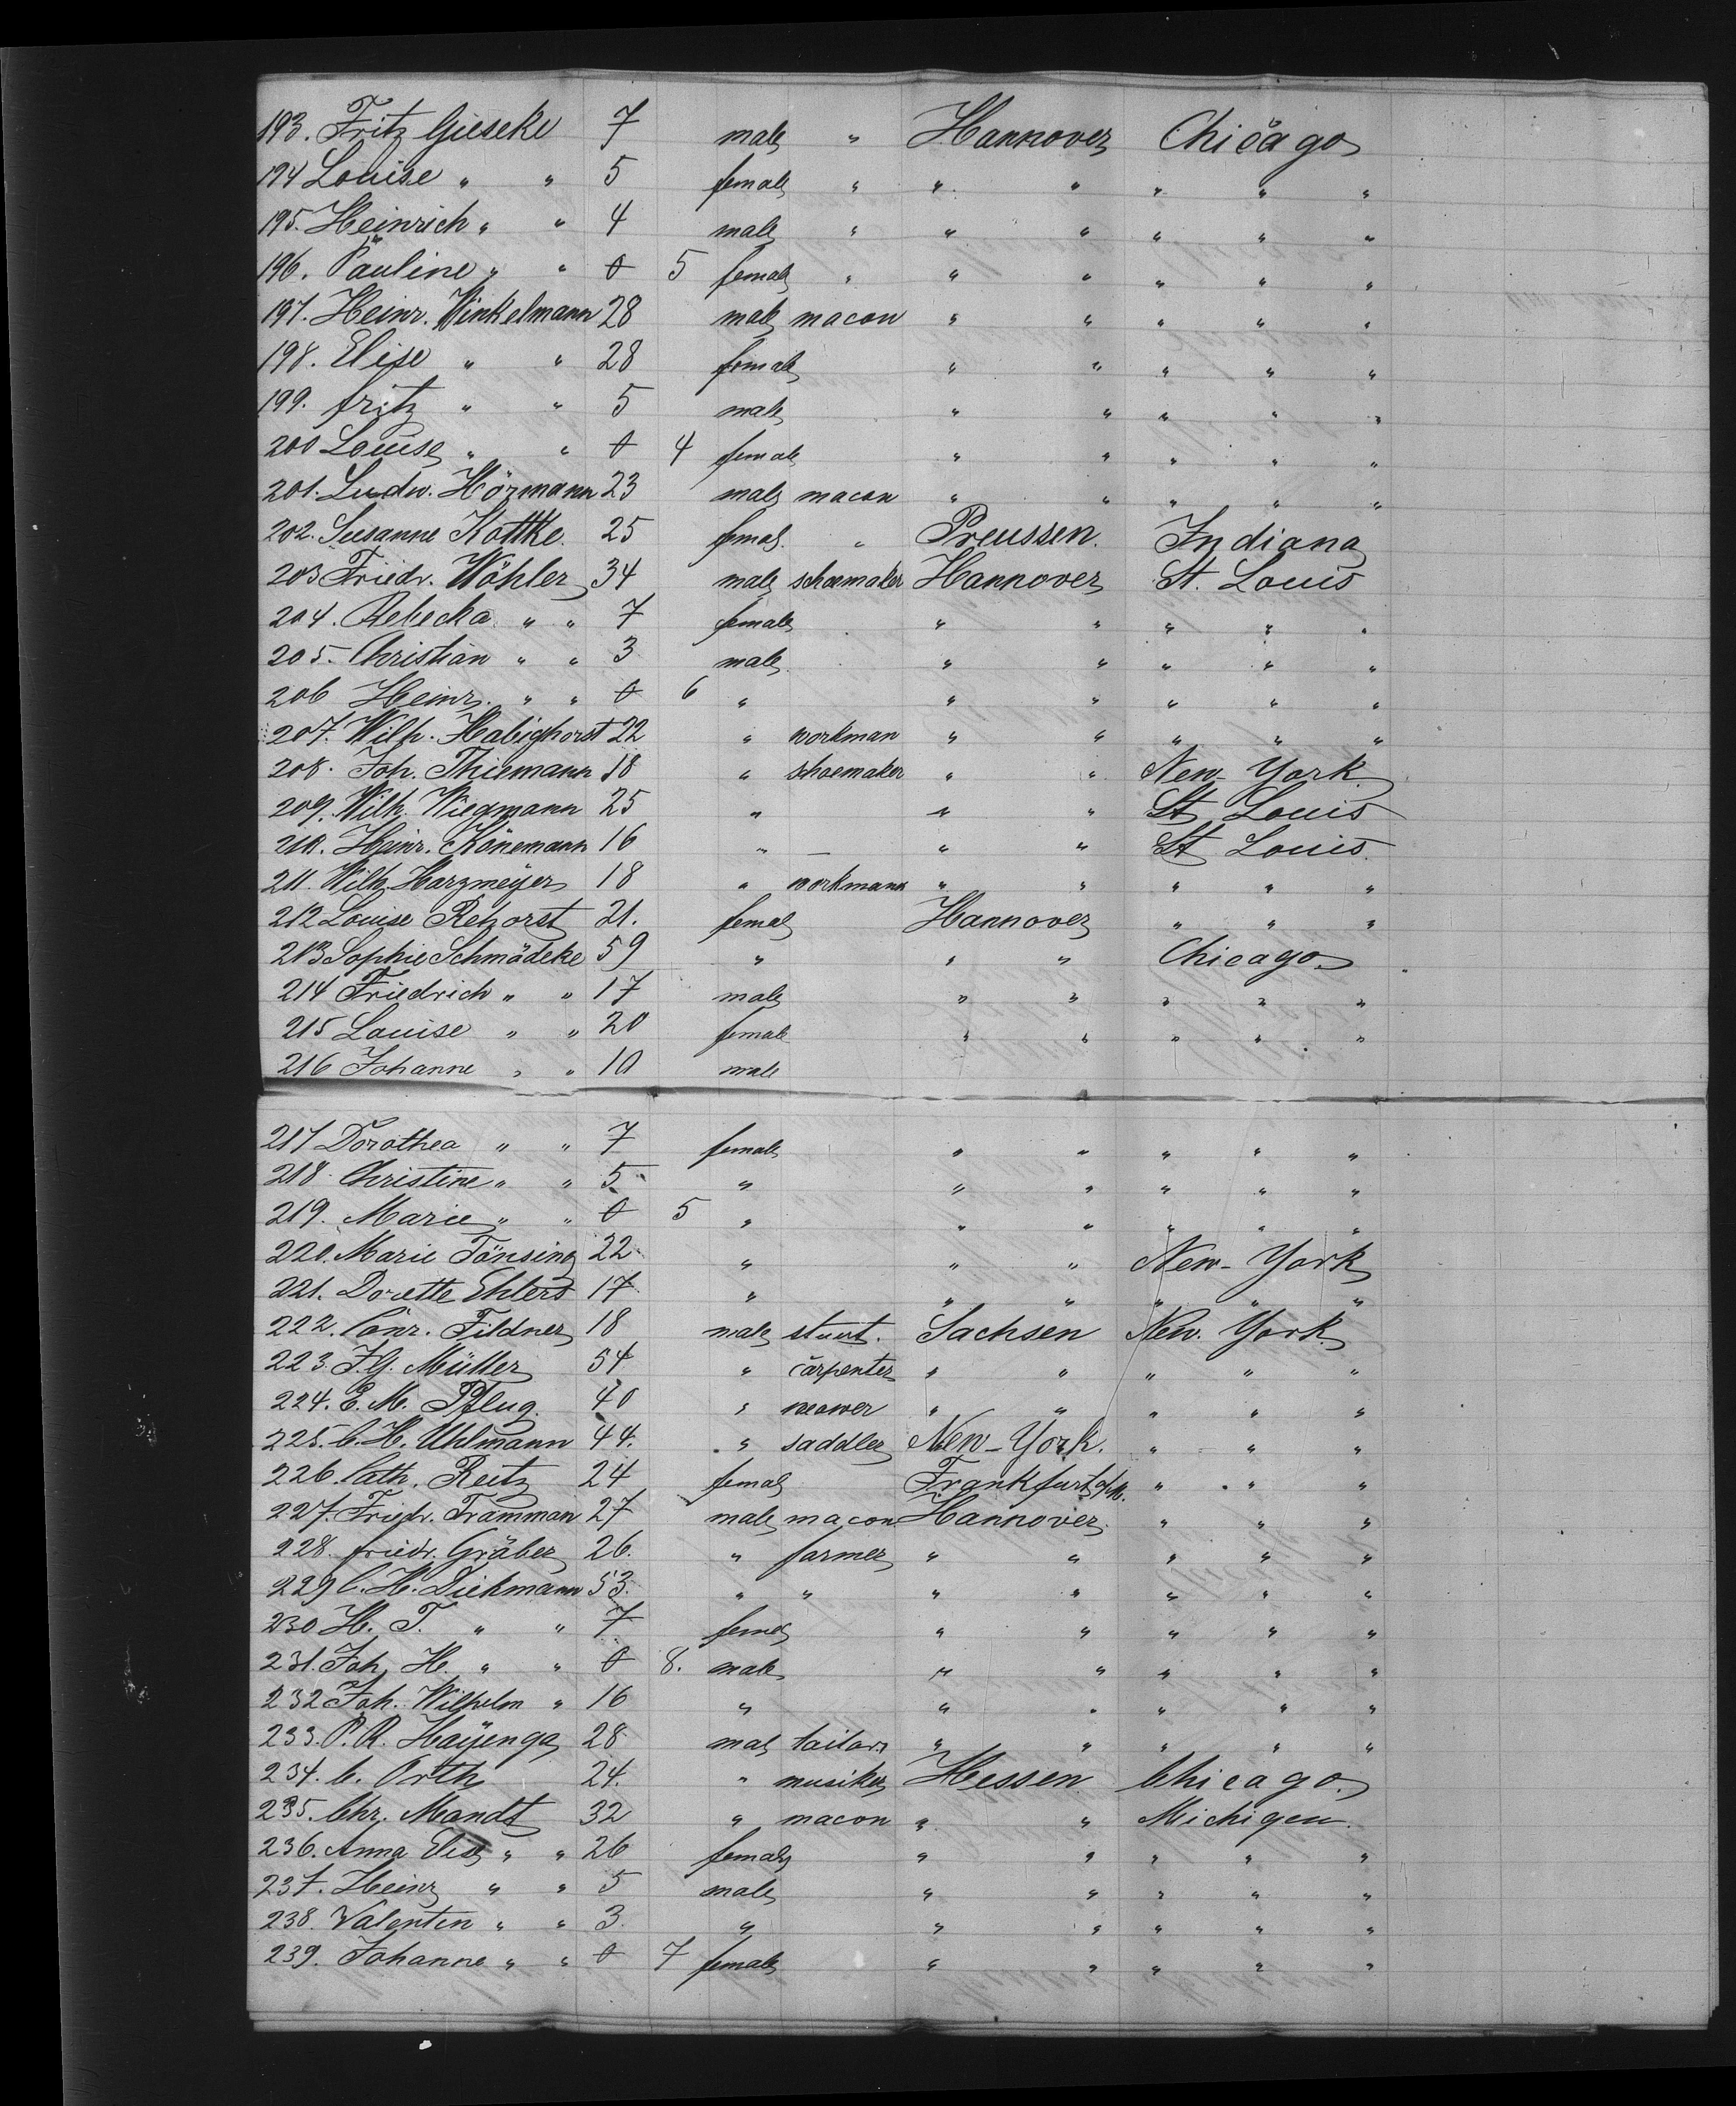 193. Fritz Gieseke 7 male " Hannover Chicago
194 Louise " " 5 female " " " " " "
195. Heinrich " " 4 male " " " " " "
196. Pauline " " 0 5 female " " " " " "
197. Heinr. Winkelmann 28 male macon " " " " "
198. Elise " " 28 female " " " " "
199. fritz " " 5 male " " " " "
200 Louise " " 0 4 female " " " " "
201. Ludw. Hörmann 23 male macon " " " " "
202. Susanne Kottke. 25 femal. " Preussen. Indiana
203 Friedr. Wöhler 34 male schoemaker Hannover St. Louis
204. Rebecka " " 7 female " " " " "
205. Christian " " 3 male. " " " " "
206 Heinr. " " 0 6 " " " " " "
207. Wilh. Habighorst 22 " workman " " " " "
208. Joh. Thiemann 18 " shoemaker " " New-York
209. Wilh. Wiegmann 25 " " " St Louis
210. Heinr. Könemann 16 " — " " St Louis.
211. Wilh. Harzmeyer 18 " workmann " " " " "
212 Louise Rehorst 21. female Hannover " " "
213 Sophie Schmädeke 59 " " " Chicago.
214 Friedrich " " 17 male " " " " "
215 Louise " " 20 female " " " " "
216 Johanne " " 10 male
217 Dorothea " " 7 female " " " " "
218 Christine " " 5 " " " " " "
219. Marie " " 0 5 " " " " " "
220. Marie Tönsing 22 " " " New-York
221. Dorette Ehlers 17 " " " " " "
222. Conr. Fildner 18 male Sachsen New. York.
223. J.G. Müller 54 " carpenter " " " " "
224. E. M. Pflug. 40 " weawer " " " " "
225. C. H. Uhlmann 44. " saddler New-York. " " "
226. Cath. Reitz 24 female Frankfurt a/M. " " "
227. Friedr. Tramman 27 male macon Hannover. " " "
228. friedr. Gräber 26. " farmer " " " " "
229 C. H. Diekmann 53. " " " " " " "
230 H. T. " " 7 female " " " " "
231. Joh. H. " " 0 8. male " " " " "
232 Joh. Wilhelm " 16 " " " " " "
233. P. R. Hayenga 28 male tailor " " " " "
234. C. Orth 24. " musiker Hessen Chicago.
235. Chr. Mandt 32 " macon " " Michigen.
236. Anna Elis " " 26 female " " " " "
237. Heinr " " 5 male " " " " "
238. Valentin " " 3. " " " " " "
239. Johanne " " 0 7 female " " " " "